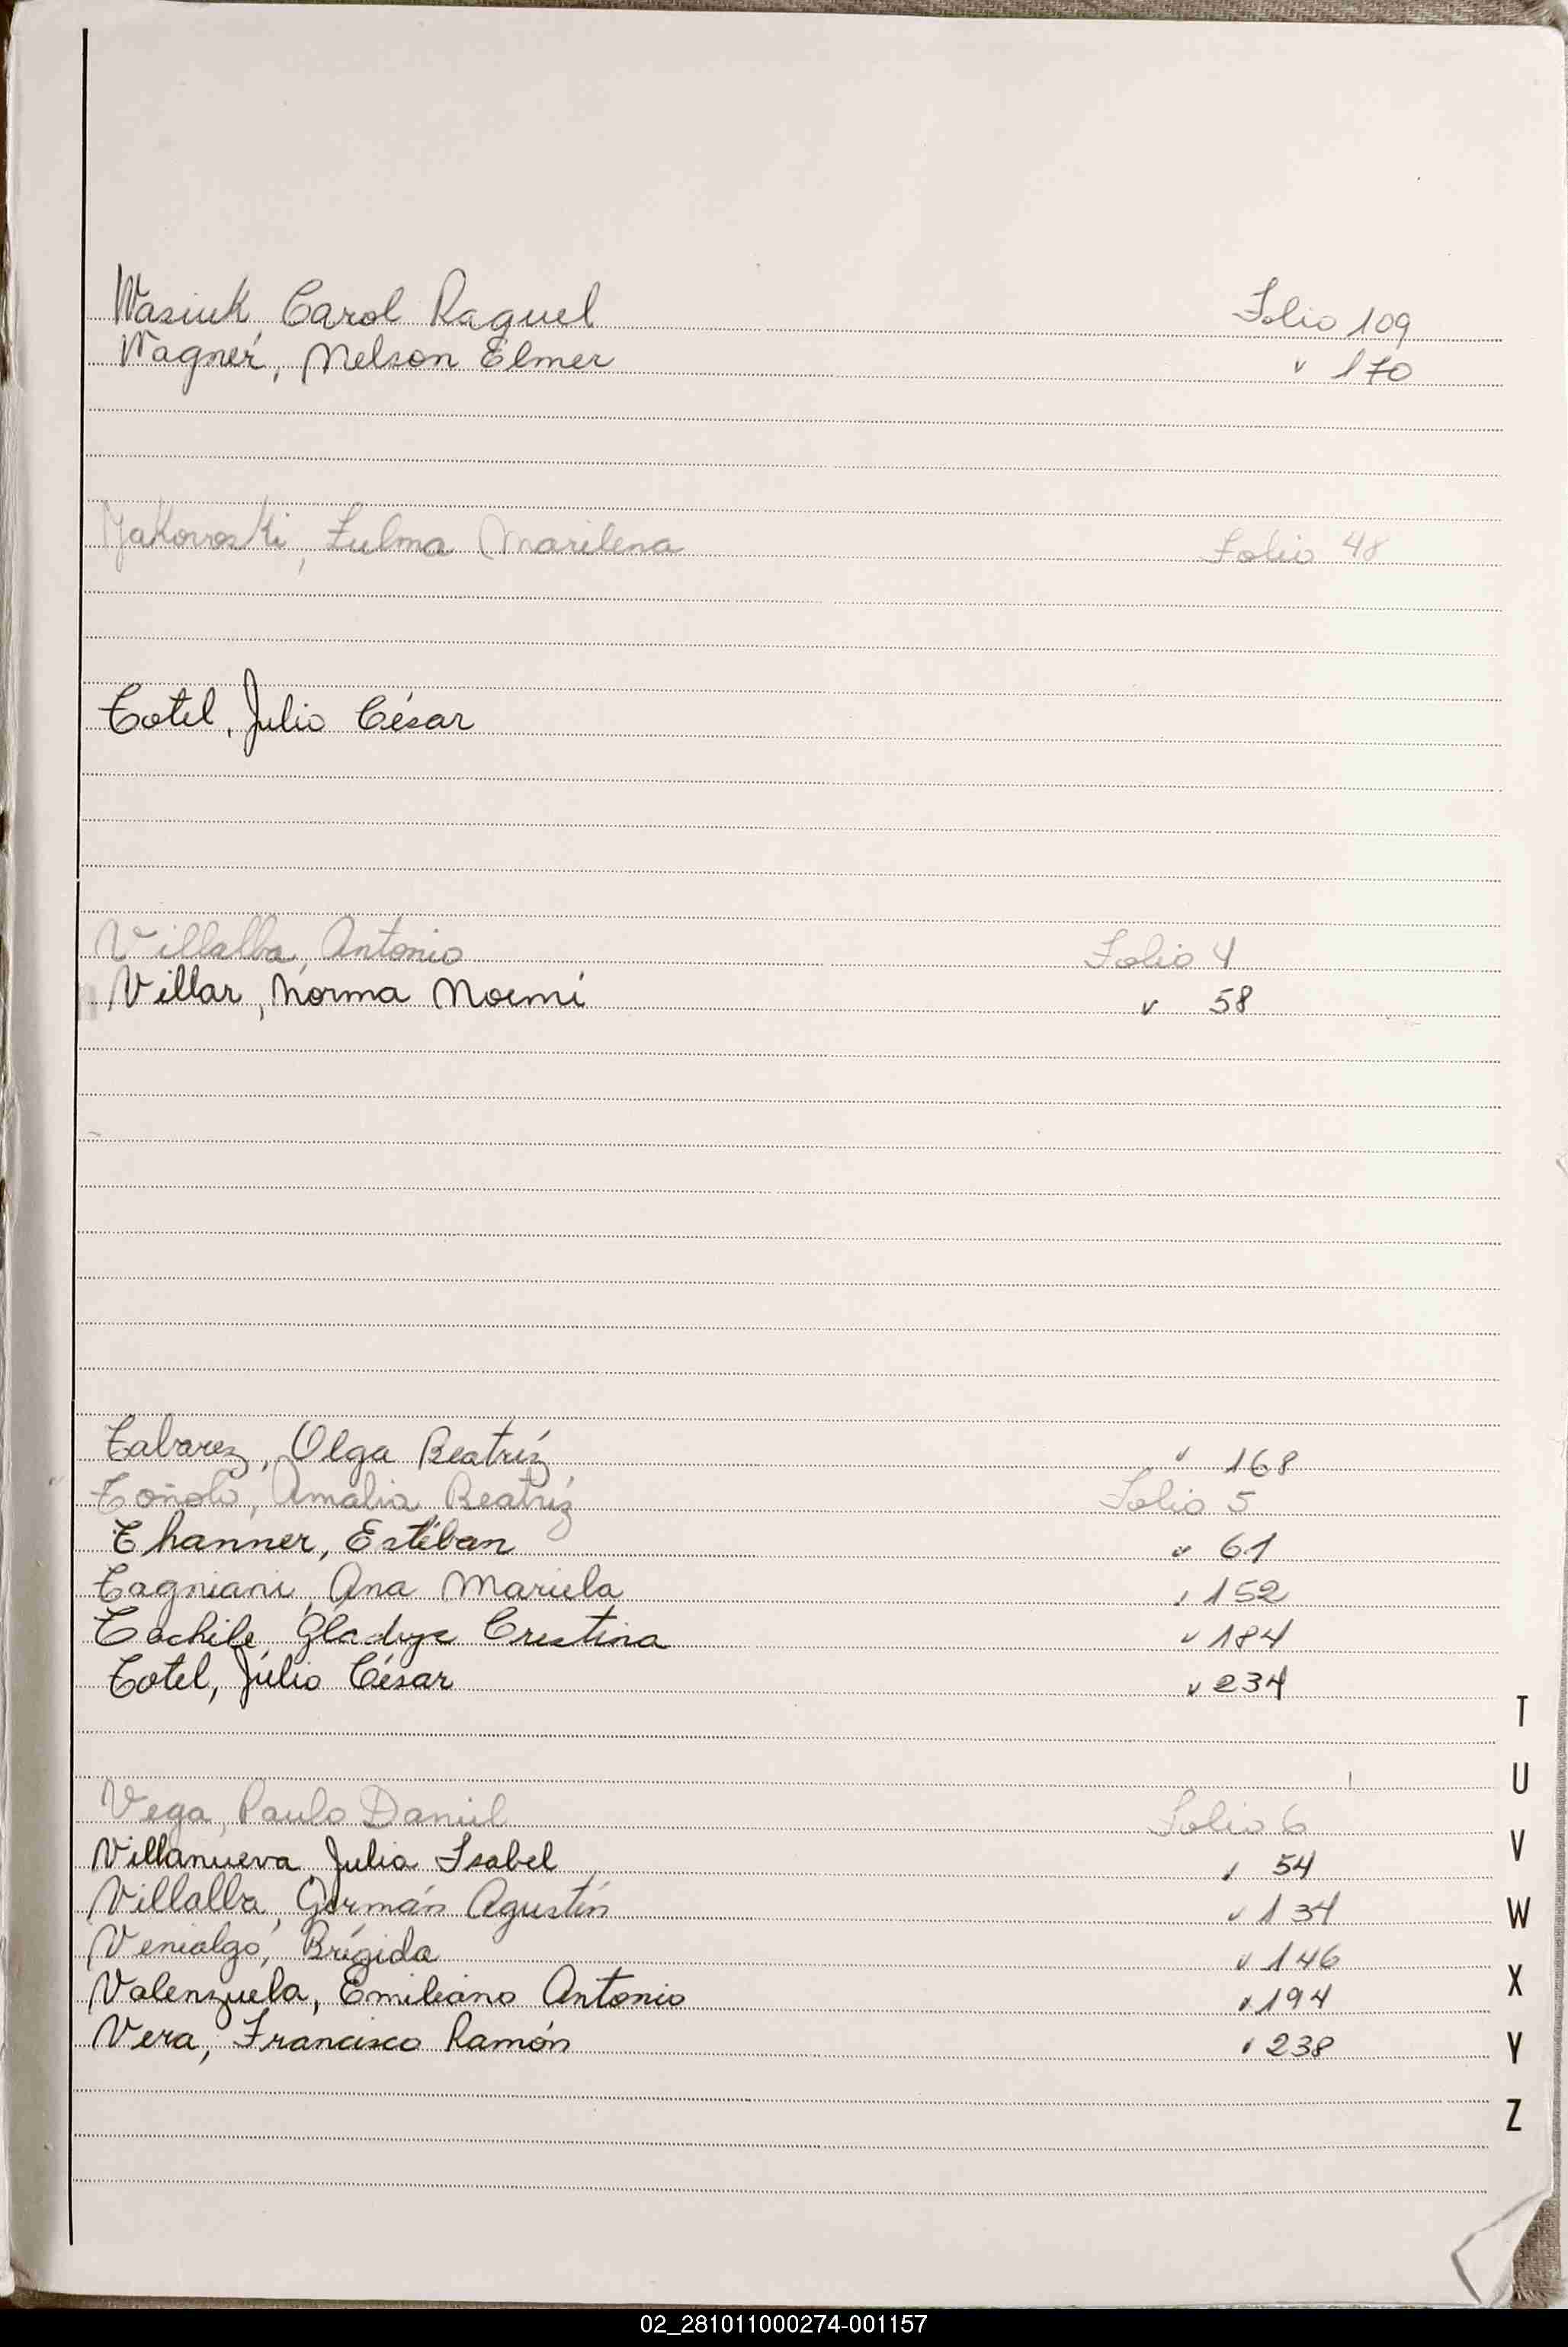 Wasiuk, Carol Raquel Folio 109
Wagner, Nelson Elmer " 170
Yakovoski, Zulma Marilena Folio 48
Totel, Julio César
Villalba, Antonio Folio 4
Villar, Norma Noemí " 58
Tabarez, Olga Beatríz " 168
Toñolo, Amalia Beatríz Folio 5
Thanner, Estéban " 61
Tagniani, Ana Mariela " 152
Gladys Cristina " 184
Totel, Julio César " 234
Vega, Paulo Daniel Folio 6
Villanueva, Julia Isabel " 54
Villalba, Germán Agustín " 134
Venialgo, Brígida " 146
Valenzuela, Emiliano Antonio " 194
Vera, Francisco Ramón " 238
T
U
V
W
X
Y
Z
02_281011000274-001157